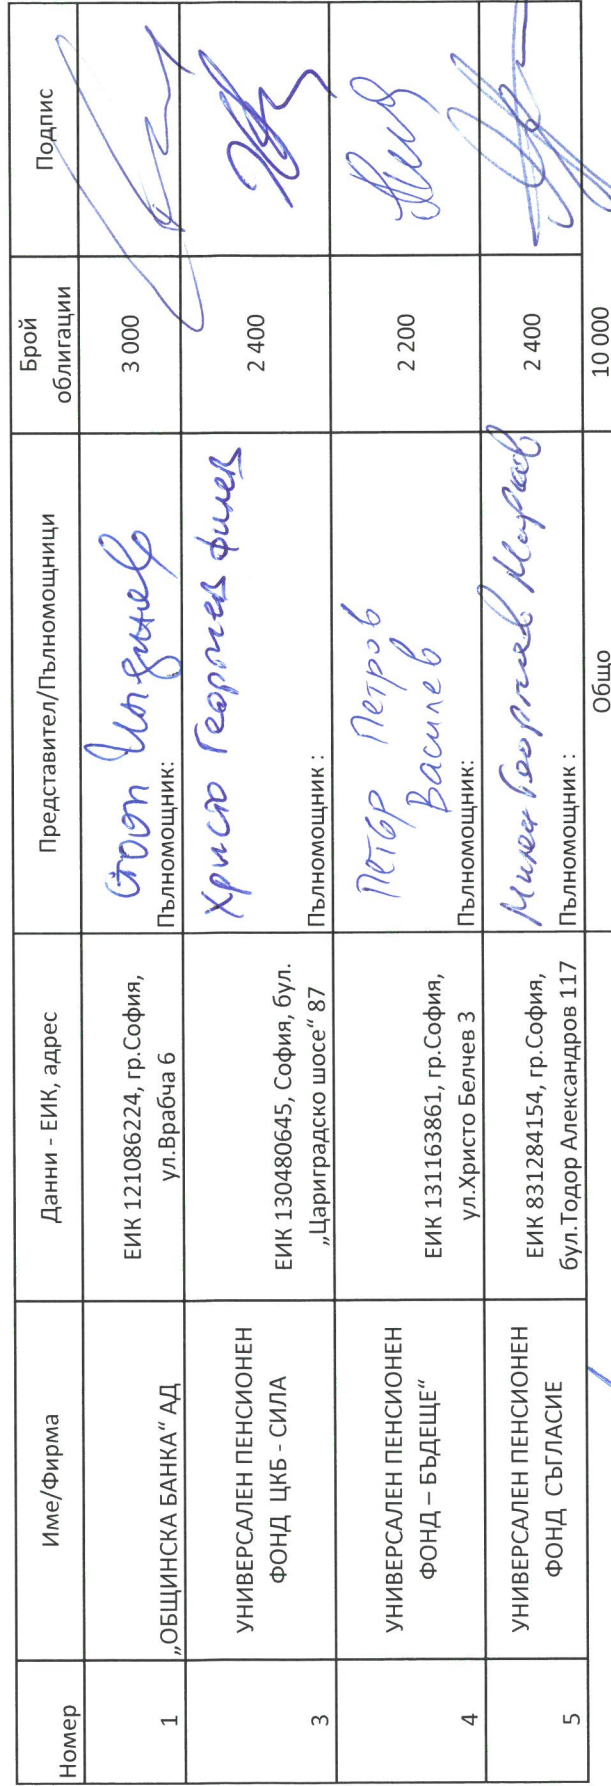 Номер Име/Фирма Данни - ЕИК, адрес Представител/Пълномощници Брой облигации Подпис
1 „ОБЩИНСКА БАНКА“ АД ЕИК 121086224, гр.София, ул.Врабча 6 Стоян Пълномощник: 3 000
3 УНИВЕРСАЛЕН ПЕНСИОНЕН ФОНД ЦКБ - СИЛА ЕИК 130480645, София, бул. „Цариградско шосе“ 87 Христо Георгиев Филев Пълномощник : 2 400
4 УНИВЕРСАЛЕН ПЕНСИОНЕН ФОНД – БЪДЕЩЕ“ ЕИК 131163861, гр.София, ул.Христо Белчев 3 Петър Петров Василев Пълномощник: 2 200
5 УНИВЕРСАЛЕН ПЕНСИОНЕН ФОНД СЪГЛАСИЕ ЕИК 831284154, гр.София, бул.Тодор Александров 117 Георгиев Пълномощник : 2 400
Общо 10 000